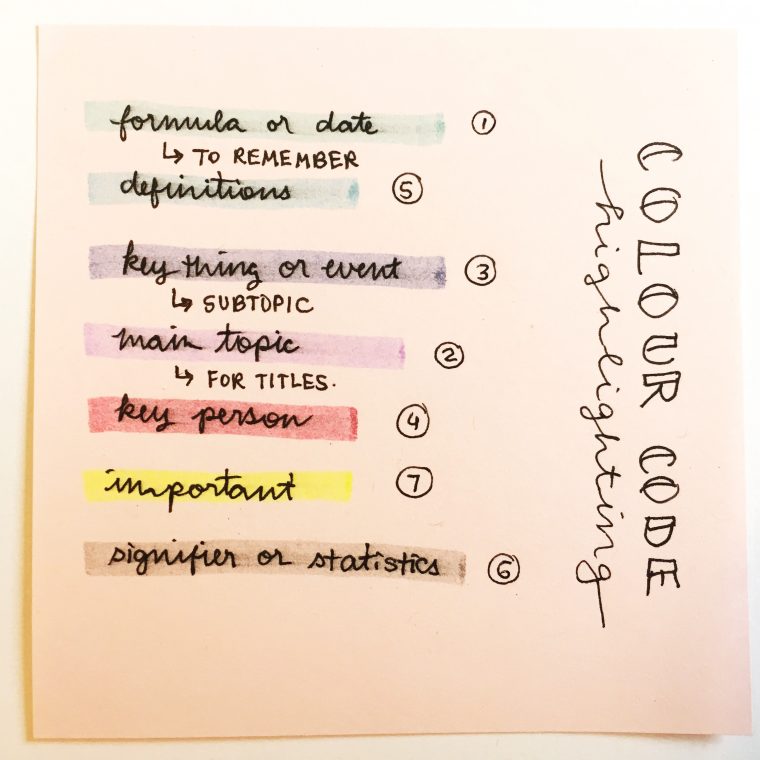 formula or date ①
↳ TO REMEMBER
definitions ⑤
key thing or event ③
↳ SUBTOPIC
main topic ②
↳ FOR TITLES.
key person ④
important ⑦
signifier or statistics ⑥
COLOUR CODE
highlighting